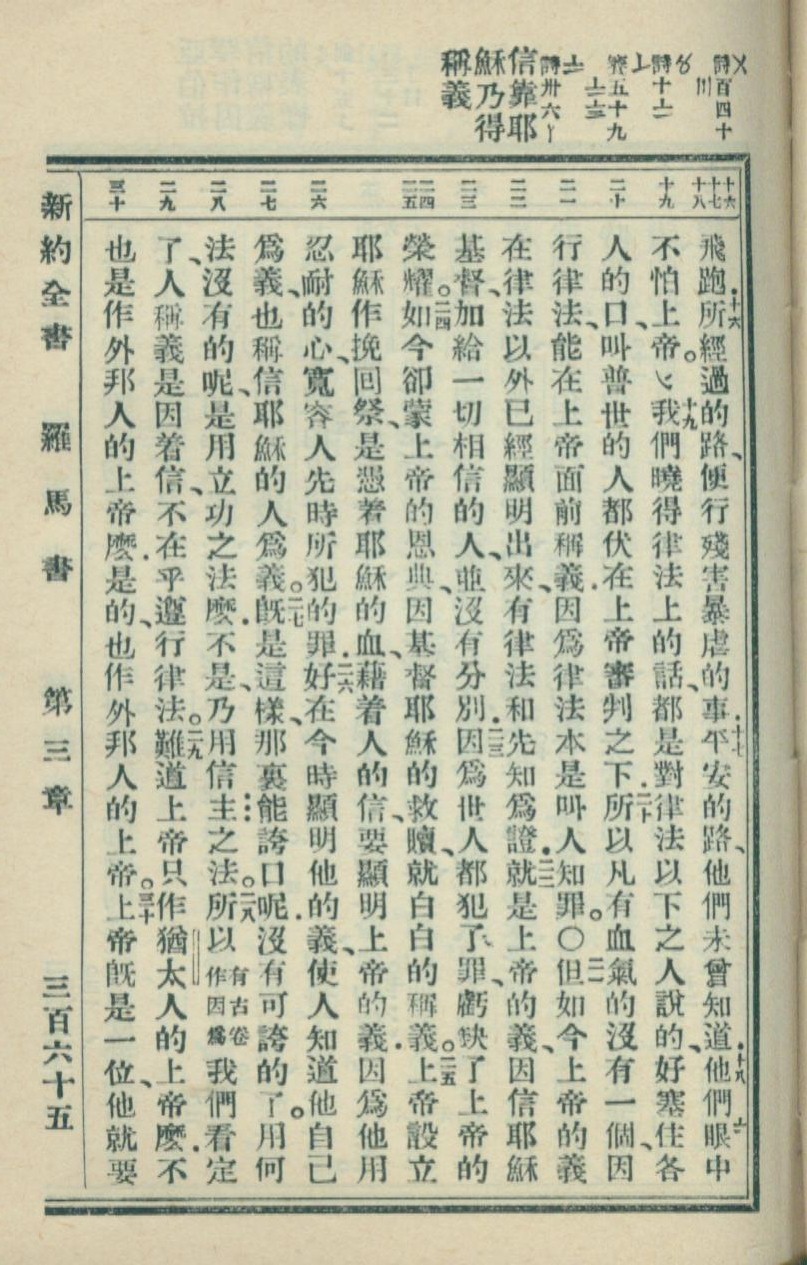 詩百四十
〤
〣
詩十〨
〥
賽五十九
〦〧
〦
詩卅六〡
信靠耶
穌乃得
稱義
十六
十七
十八
十九
二十
二一
二二
二三
二四
二五
二六
二七
二八
二九
三十
飛跑、十六所經過的路、便行殘害暴虐的事、十七平安的路、他們未曾知道、十八他們眼中
不怕上帝。十九我們曉得律法上的話、都是對律法以下之人說的、好塞住各
人的口、叫普世的人都伏在上帝審判之下、二十所以凡有血氣的沒有一個、因
行律法、能在上帝面前稱義、因爲律法本是叫人知罪。〇二一但如今上帝的義
在律法以外已經顯明出來、有律法和先知爲證、二二就是上帝的義、因信耶穌
基督、加給一切相信的人、並沒有分別、二三因爲世人都犯了罪、虧缺了上帝的
榮耀。二四如今卻蒙上帝的恩典、因基督耶穌的救贖、就白白的稱義。二五上帝設立
耶穌作挽回祭、是憑着耶穌的血、藉着人的信、要顯明上帝的義、因爲他用
忍耐的心、寬容人先時所犯的罪、二六好在今時顯明他的義、使人知道他自己
爲義、也稱信耶穌的人爲義。二七旣是這樣、那裏能誇口呢、沒有可誇的了。用何
法沒有的呢、是用立功之法麽、不是、乃用信主之法。二八所以有古卷作因爲我們看定
了、人稱義是因着信、不在乎遵行律法。二九難道上帝只作猶太人的上帝麽、不
也是作外邦人的上帝麽、是的、也作外邦人的上帝。三十上帝旣是一位、他就要
新約全書　羅馬書　第三章　三百六十五